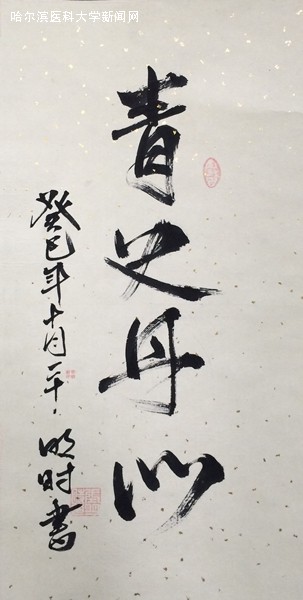 哈尔滨医科大学新闻网
青史丹心
癸巳年十月
明时书